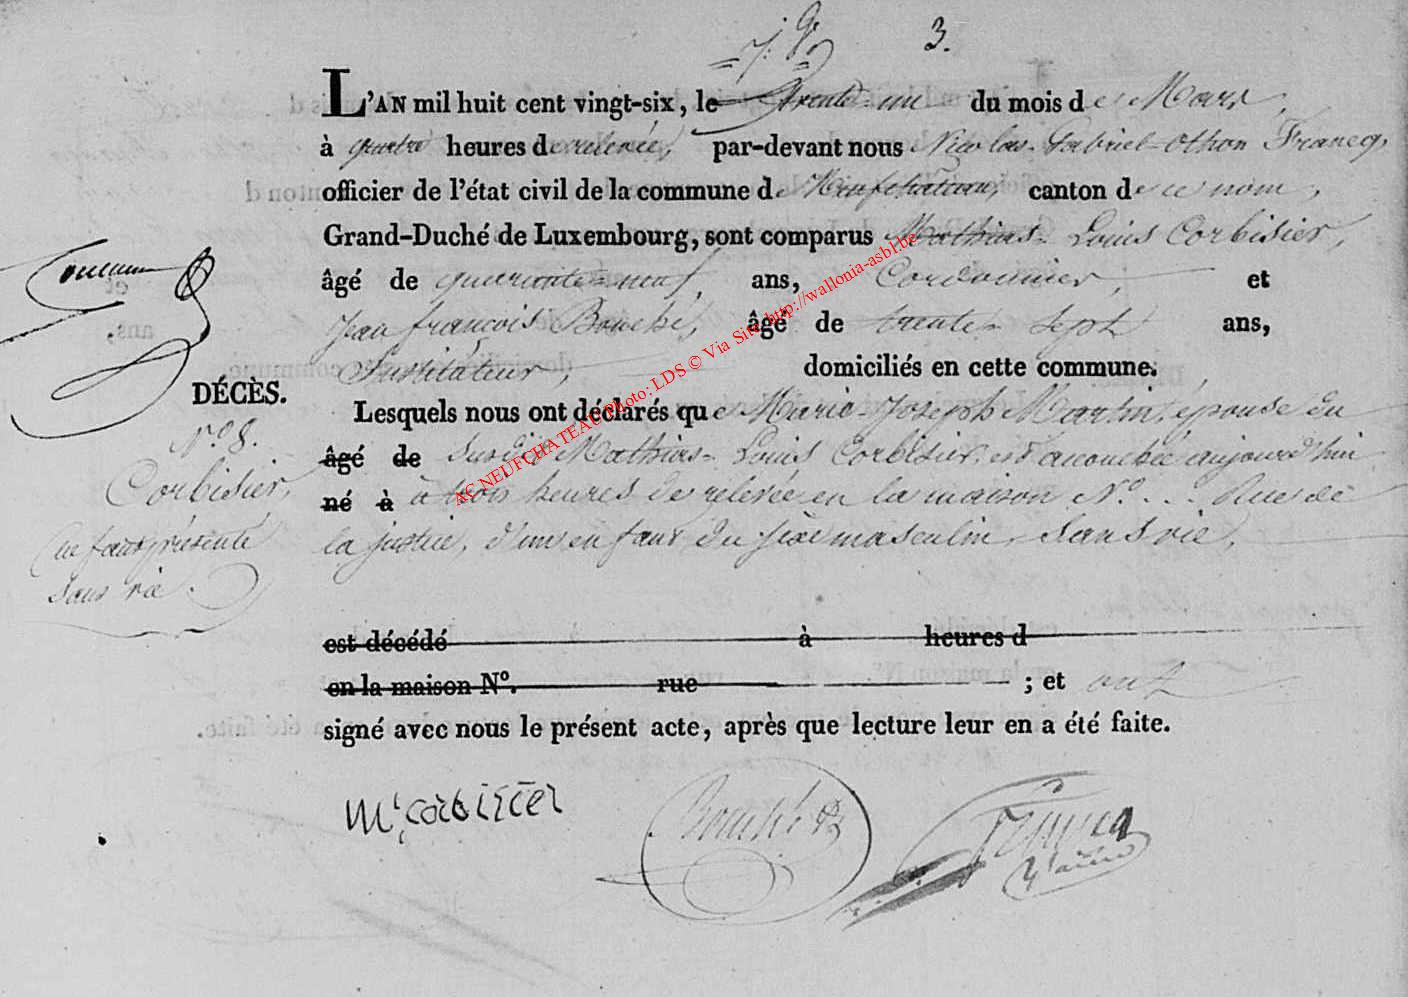 3.
L'AN mil huit cent vingt-six, le trente-un du mois de Mars,
à quatre heures de relevée, par-devant nous Nicolas-Gabriel-Othon Francq,
officier de l'état civil de la commune de Neufchateau, canton de ce nom,
Grand-Duché de Luxembourg, sont comparus Mathias-Louis Corbisier,
âgé de quarante-neuf ans, Cordonnier, et
Jean françois Bouché, âgé de trente-sept ans,
Instituteur, domiciliés en cette commune.
DÉCÈS.
N° 8.
Corbisier,
enfant présenté
sans vie.
Lesquels nous ont déclarés que Marie-Joseph Martin, epouse du
âgé de susdit Mathias-Louis Corbisier est accouchée aujourd'hui
né à à trois heures de relevée en la maison N° .. Rue de
la justice, d'un enfant du sexe masculin, sans vie,
est décédé à heures d
en la maison N°. rue ; et ont
signé avec nous le présent acte, après que lecture leur en a été faite.
Mt Corbisier
Bouché
Francq
AC NEUFCHATEAU Photo: LDS © Via Site http://wallonia-asbl.be